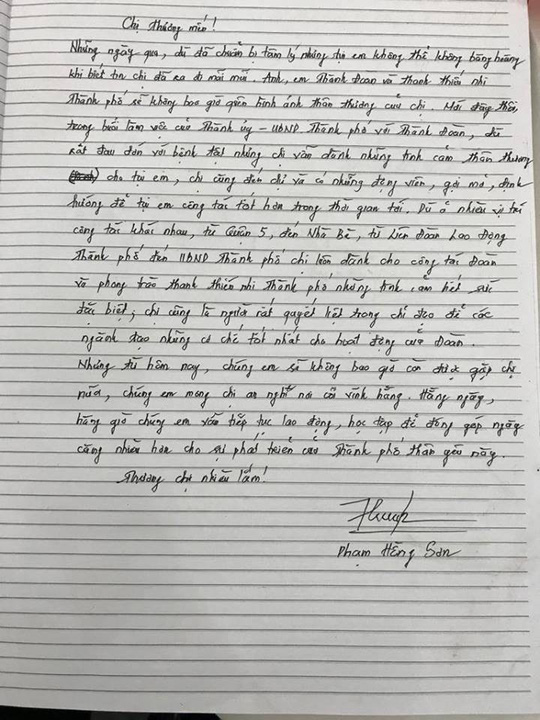 Chị thương mến!
Những ngày qua, dù đã chuẩn bị tâm lý nhưng tụi em không thể không bàng hoàng
khi biết tin chị đã ra đi mãi mãi. Anh, em Thành Đoàn và thanh thiếu nhi
Thành phố sẽ không bao giờ quên hình ảnh thân thương của chị. Mới
trong buổi làm việc của Thành ủy - UBND Thành phố với Thành Đoàn, dù
rất đau đớn với bệnh tật nhưng chị vẫn dành những tình cảm thân thương
cho tụi em, chị cũng đến chỉ và có những động viên, gợi mở, định
hướng để tụi em công tác tốt hơn trong thời gian tới. Dù ở nhiều vị trí
công tác khác nhau, từ Quận 5, đến Nhà Bè, từ Liên Đoàn Lao Động
Thành phố đến UBND Thành phố chị luôn dành cho công tác Đoàn
và phong trào thanh thiếu nhi Thành phố những tình cảm hết sức
đặc biệt; chị cũng là người rất quyết liệt trong chỉ đạo để các
ngành tạo những cơ chế tốt nhất cho hoạt động của Đoàn.
Nhưng từ hôm nay, chúng em sẽ không bao giờ còn được gặp chị
nữa, chúng em mong chị an nghỉ nơi cõi vĩnh hằng. Hằng ngày,
hằng giờ chúng em vẫn tiếp tục lao động, học tập để đóng góp ngày
càng nhiều hơn cho sự phát triển của Thành phố thân yêu này.
Thương chị nhiều lắm!
Phạm Hồng Sơn